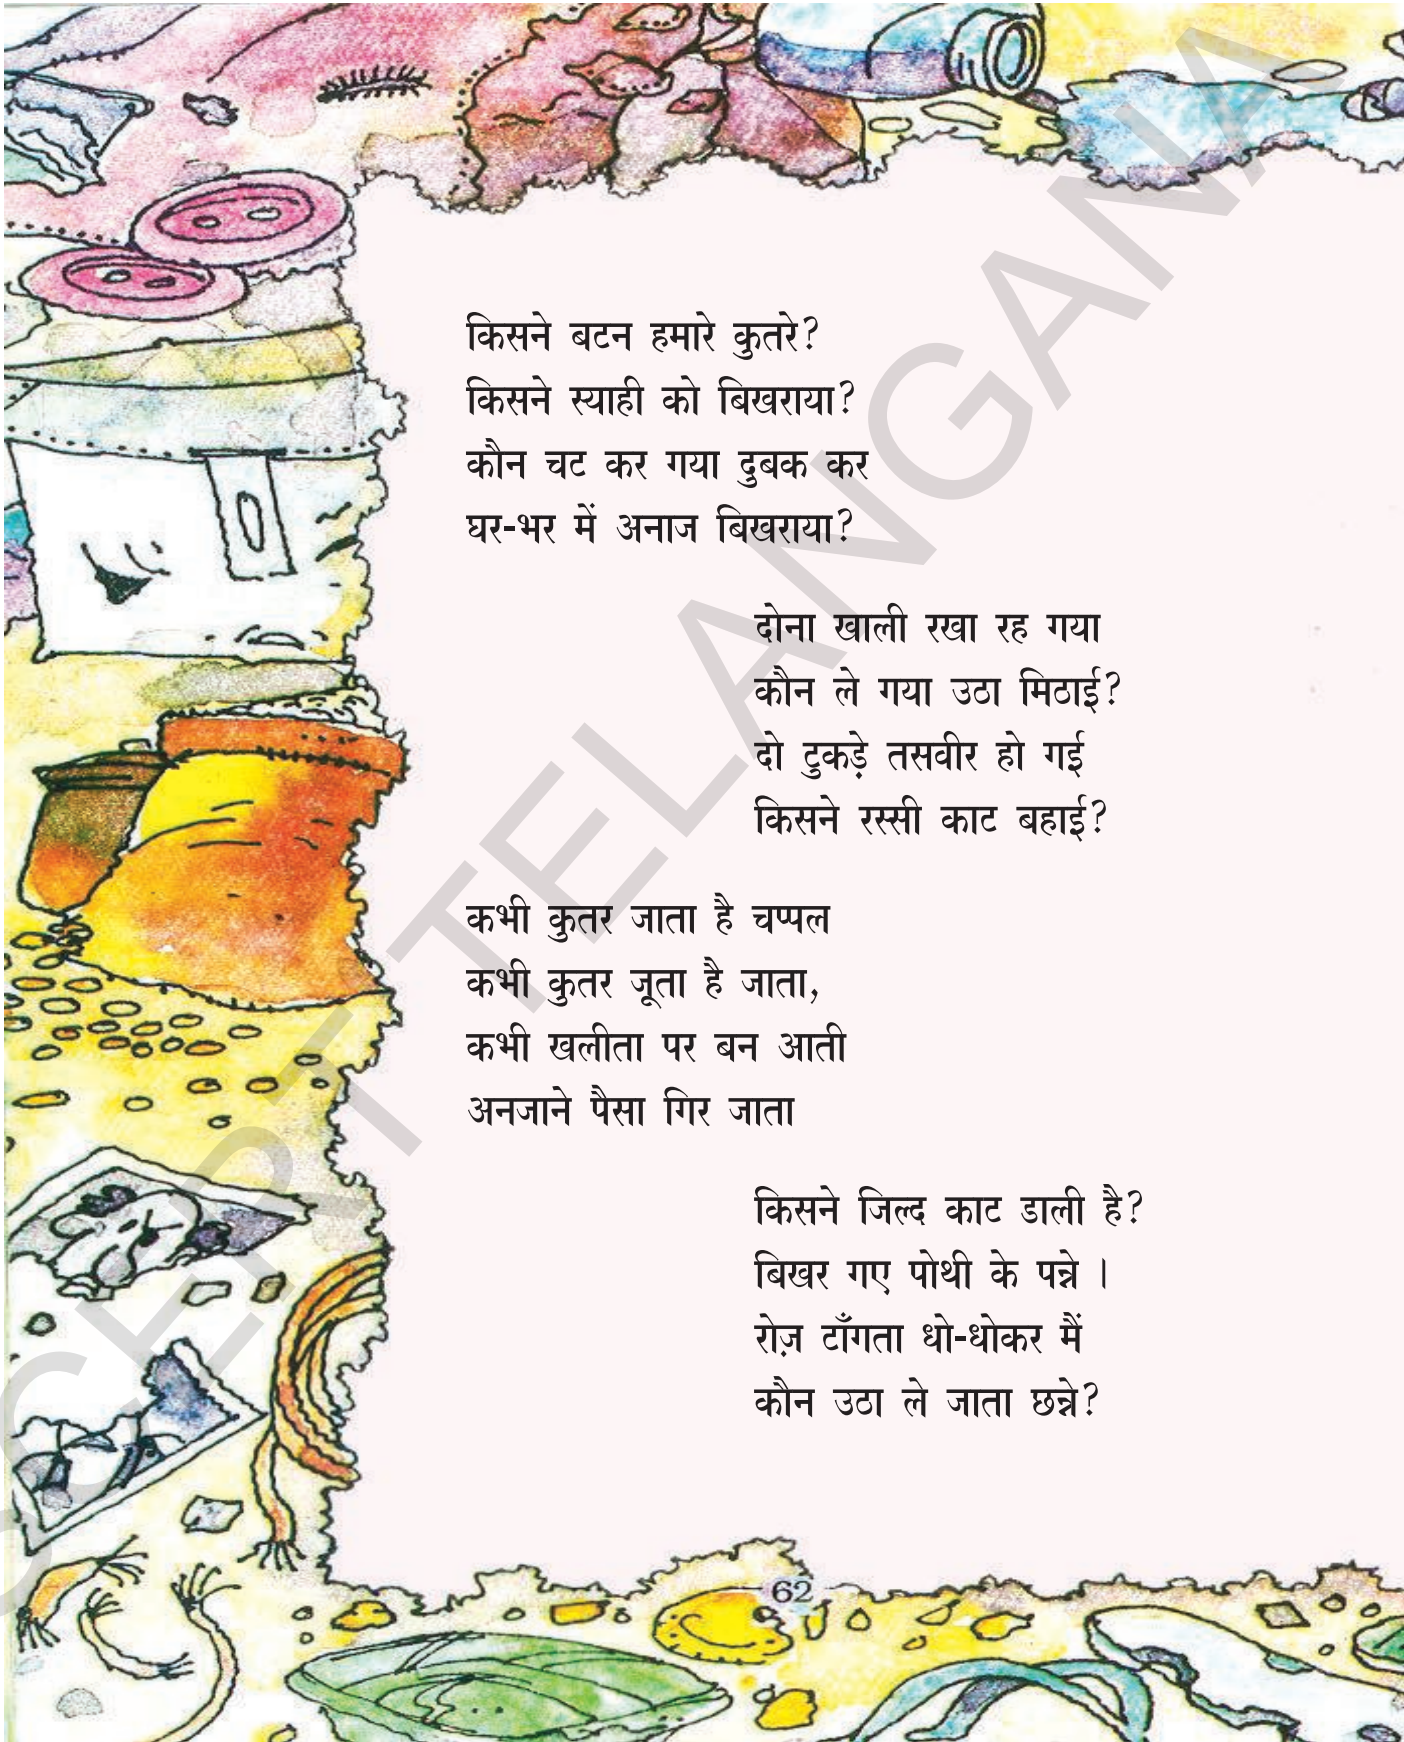 किसने बटन हमारे कुतरे?
किसने स्याही को बिखराया?
कौन चट कर गया दुबक कर
घर-भर में अनाज बिखराया?
दोना खाली रखा रह गया
कौन ले गया उठा मिठाई?
दो टुकड़े तसवीर हो गई
किसने रस्सी काट बहाई?
कभी कुतर जाता है चप्पल
कभी कुतर जूता है जाता,
कभी खलीता पर बन आती
अनजाने पैसा गिर जाता
किसने जिल्द काट डाली है?
बिखर गए पोथी के पन्ने ।
रोज़ टाँगता धो-धोकर मैं
कौन उठा ले जाता छन्ने?
62
SCERT TELANGANA